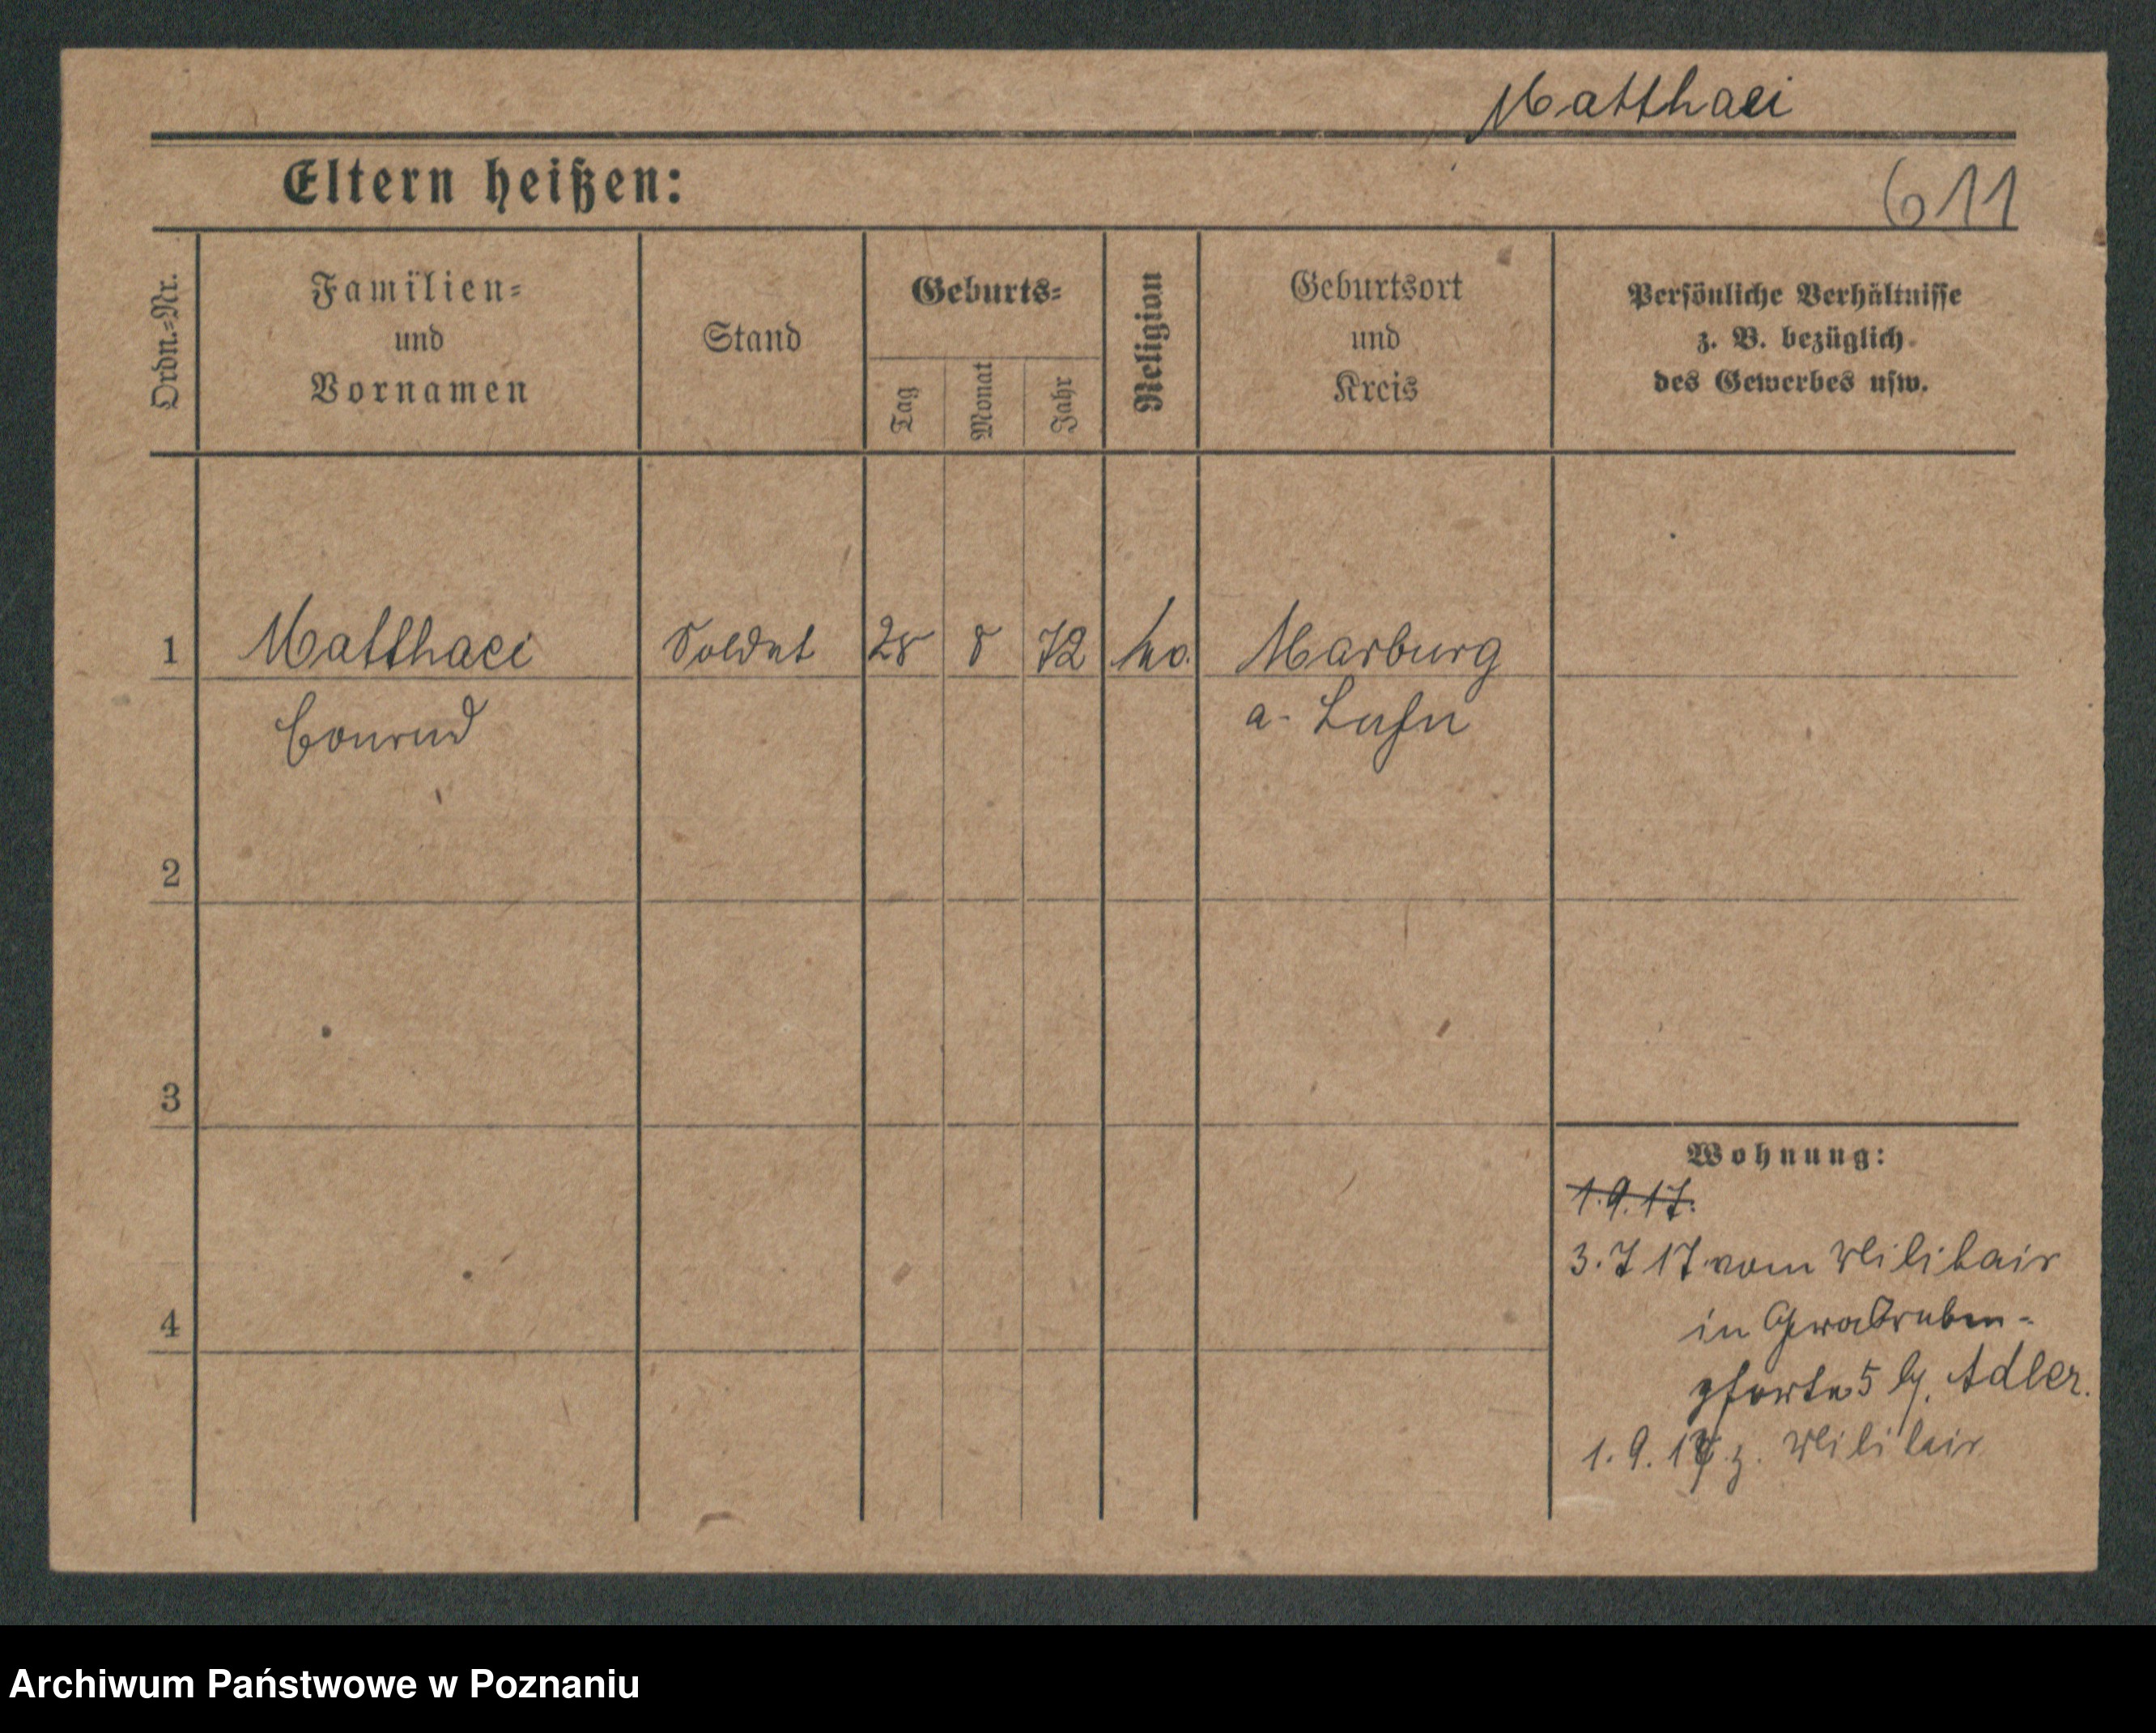 Matthaei
Eltern heißen:
611
Ordn.=Nr.
Familien=
und
Vornamen
Stand
Geburts=
Tag
Monat
Jahr
Religion
Geburtsort
und
Kreis
Persönliche Verhältnisse
z. B. bezüglich
des Gewerbes usw.
1 Matthaei Soldat 28 8 72 Marburg
Conrad a. Lahn
2
3
4
Wohnung:
1.9.17.
3.7 17 vom Militair
in Graben-
pforte 5 b/ Adler.
1.9.17 z. Militair
Archiwum Państwowe w Poznaniu